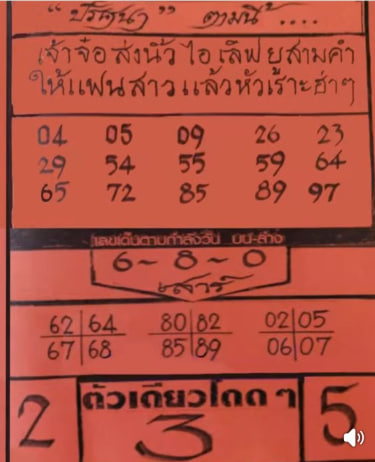 “ปริศนา” ตามนี้....
เจ้าจ๋อ ส่งนิ้ว ไอ เลิฟ ยู สามคำ
ให้แฟนสาวแล้วหัวเราะฮ่าๆ
04 05 09 26 23
29 54 55 59 64
65 72 85 89 97
เลขเด่นตามกำลังวัน บน-ล่าง
6~8~0
เสาร์
62 64 80 82 02 05
67 68 85 89 06 07
ตัวเดียวโดดๆ
2 3 5